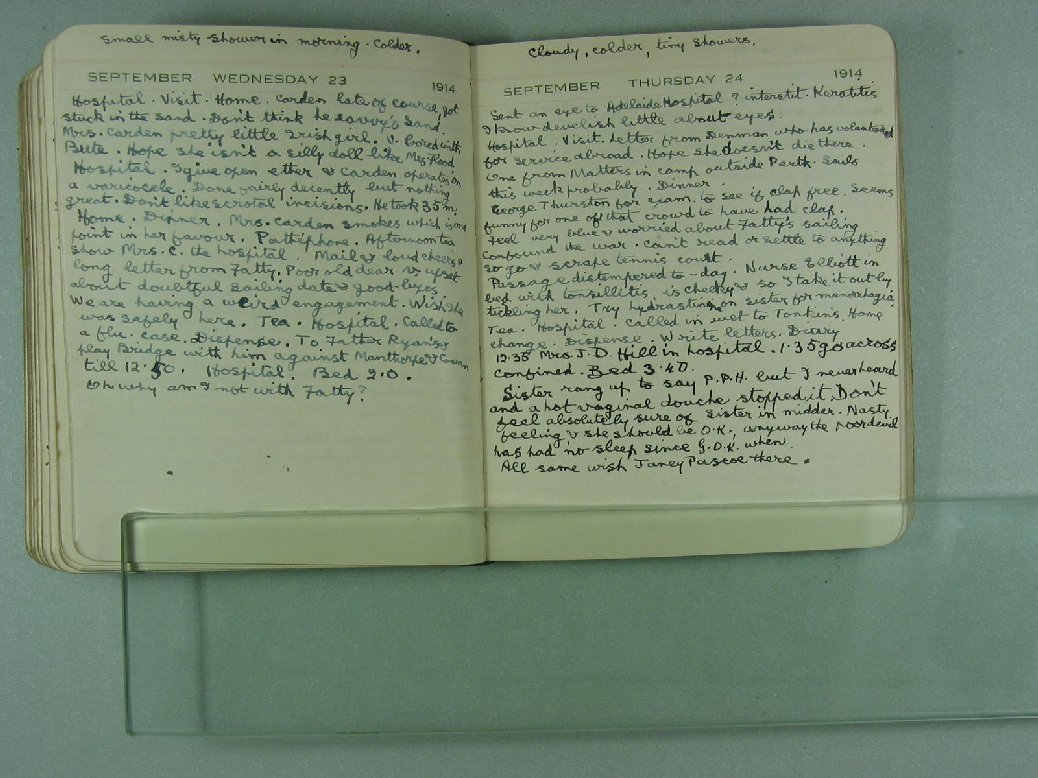 Small misty shower in morning. Colder.
SEPTEMBER WEDNESDAY 23 1914
Hospital. Visit. Home. Carden late of course, got
stuck in the sand. Don't think he savvy's sand.
Mrs. Carden pretty little Irish girl. V. bored with
Bute. Hope she isn't a silly doll like Mrs Flood
Hospital. I give open ether & Carden operates on
a varicocele. Done fairly decently but nothing
great. Don't like scrotal incisions. He took 35 m.
Home. Dinner. Mrs. Carden smokes which is one
point in her favour. Pathéphone. Afternoon tea
show Mrs. C. the hospital. Mail & loud cheers a
long letter from Fatty. Poor old dear v. upset
about doubtful sailing date & good-byes
We are having a weird engagement. Wish she
was safely here. Tea. Hospital. Called to
a flu. case. Dispense. To Father Ryan's &
play Bridge with him against Manthorpe & Cowan
till 12.50. Hospital. Bed 2.0.
Oh why am I not with Fatty?
Cloudy, colder, tiny showers.
SEPTEMBER THURSDAY 24 1914
Sent an eye to Adelaide Hospital ? interstit. Keratitis
I know develish little about eyes.
Hospital. Visit. Letter from Denman who has volunteered
for service abroad. Hope she doesn't die there.
One from Matters in camp outside Perth. Sails
this week probably. Dinner.
George Thurston for exam. to see if clap free. Seems
funny for one of that crowd to have had clap.
Feel very blue & worried about Fatty's sailing
Confound the war. Can't read or settle to anything
so go & scrape tennis court.
Passage distempered to-day. Nurse Elliott in
bed with tonsillitis, is cheeky & so I take it out by
tickling her. Try hydrastin on sister for menorrhagia
Tea. Hospital. Called in wet to Tonkin's. Home
change. Dispense. Write letters. Diary
12.35 Mrs. J. D. Hill in hospital. 1.35 go across
confined. Bed 3.40.
Sister rang up to say P.P.H. but I never heard
and a hot vaginal douche stopped it. Don't
feel absolutely sure of sister in midder. Nasty
feeling & she should be O.K., anyway the poor devil
has had no sleep since G.O.K. when
All same wish Janey Pascoe there.